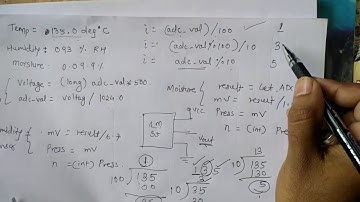 Temp = 0135.0 deg°C
Humidity: 093 % RH
moisture: 0.09.9%
Voltage = (long) adc_val * 500.
adc_val = voltag / 1024.0
i = (adc_val) / 100 ✓ 1
i = (adc_val % 100) / 10 3
i = adc_val % 10 5
Moisture result = Get ADC
mV = result /
Press = mV
n = (int) Press
mV = result / 6.7
Press = mV
n = (int) Press.
LM
35
Vcc
Vout
1
100 ) 135
100
135
10 ) 35
13
10 ) 135
130
5